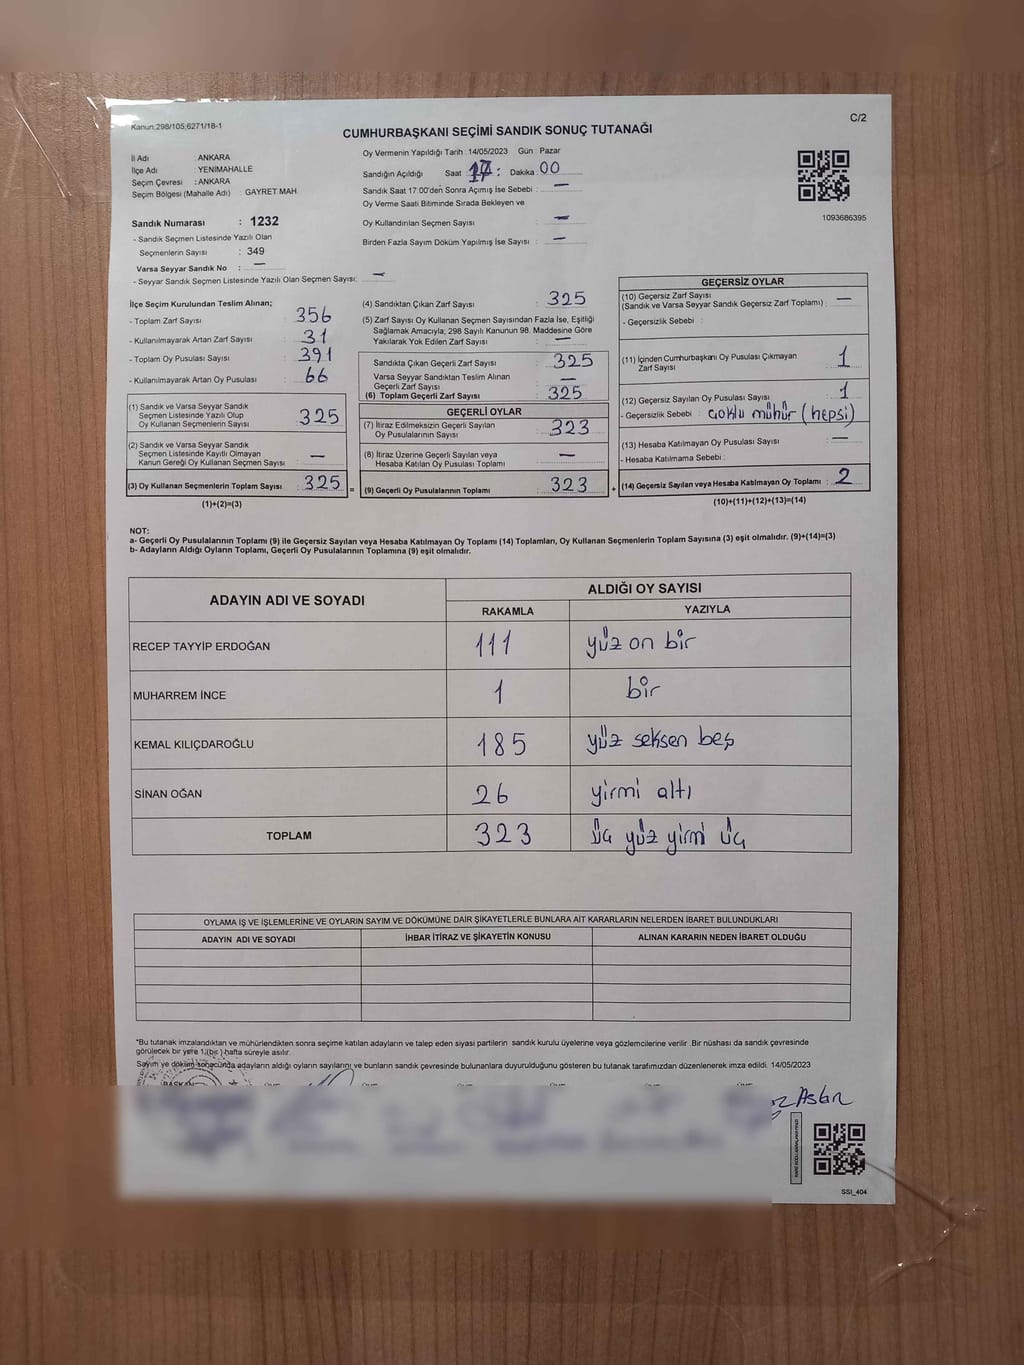 Kanun:298/105;6271/18-1
C/2
CUMHURBAŞKANI SEÇİMİ SANDIK SONUÇ TUTANAĞI
İl Adı : ANKARA
İlçe Adı : YENİMAHALLE
Seçim Çevresi : ANKARA
Seçim Bölgesi (Mahalle Adı) : GAYRET MAH.
Sandık Numarası : 1232
- Sandık Seçmen Listesinde Yazılı Olan
Seçmenlerin Sayısı : 349
Varsa Seyyar Sandık No : —
- Seyyar Sandık Seçmen Listesinde Yazılı Olan Seçmen Sayısı: —
Oy Vermenin Yapıldığı Tarih :14/05/2023 Gün : Pazar
Sandığın Açıldığı Saat 17 : Dakika 00
Sandık Saat 17:00'den Sonra Açımış İse Sebebi : —
Oy Verme Saati Bitiminde Sırada Bekleyen ve
Oy Kullandırılan Seçmen Sayısı : —
Birden Fazla Sayım Döküm Yapılmış İse Sayısı : —
1093686395
İlçe Seçim Kurulundan Teslim Alınan;
- Toplam Zarf Sayısı : 356
- Kullanılmayarak Artan Zarf Sayısı : 31
- Toplam Oy Pusulası Sayısı : 391
- Kullanılmayarak Artan Oy Pusulası : 66
(1) Sandık ve Varsa Seyyar Sandık
Seçmen Listesinde Yazılı Olup
Oy Kullanan Seçmenlerin Sayısı : 325
(2) Sandık ve Varsa Seyyar Sandık
Seçmen Listesinde Kayıtlı Olmayan
Kanun Gereği Oy Kullanan Seçmen Sayısı : —
(3) Oy Kullanan Seçmenlerin Toplam Sayısı : 325 =
(1)+(2)=(3)
(4) Sandıktan Çıkan Zarf Sayısı : 325
(5) Zarf Sayısı Oy Kullanan Seçmen Sayısından Fazla İse, Eşitliği
Sağlamak Amacıyla; 298 Sayılı Kanunun 98. Maddesine Göre
Yakılarak Yok Edilen Zarf Sayısı : —
Sandıkta Çıkan Geçerli Zarf Sayısı : 325
Varsa Seyyar Sandıktan Teslim Alınan
Geçerli Zarf Sayısı : —
(6) Toplam Geçerli Zarf Sayısı : 325
GEÇERLİ OYLAR
(7) İtiraz Edilmeksizin Geçerli Sayılan
Oy Pusulalarının Sayısı : 323
(8) İtiraz Üzerine Geçerli Sayılan veya
Hesaba Katılan Oy Pusulası Toplamı : —
(9) Geçerli Oy Pusulalarının Toplamı : 323 +
GEÇERSİZ OYLAR
(10) Geçersiz Zarf Sayısı
(Sandık ve Varsa Seyyar Sandık Geçersiz Zarf Toplamı) : —
- Geçersizlik Sebebi :
(11) İçinden Cumhurbaşkanı Oy Pusulası Çıkmayan
Zarf Sayısı : 1
(12) Geçersiz Sayılan Oy Pusulası Sayısı : 1
- Geçersizlik Sebebi : çoklu mühür (hepsi)
(13) Hesaba Katılmayan Oy Pusulası Sayısı : —
- Hesaba Katılmama Sebebi :
(14) Geçersiz Sayılan veya Hesaba Katılmayan Oy Toplamı : 2
(10)+(11)+(12)+(13)=(14)
NOT:
a- Geçerli Oy Pusulalarının Toplamı (9) ile Geçersiz Sayılan veya Hesaba Katılmayan Oy Toplamı (14) Toplamları, Oy Kullanan Seçmenlerin Toplam Sayısına (3) eşit olmalıdır. (9)+(14)=(3)
b- Adayların Aldığı Oyların Toplamı, Geçerli Oy Pusulalarının Toplamına (9) eşit olmalıdır.
ADAYIN ADI VE SOYADI
ALDIĞI OY SAYISI
RAKAMLA YAZIYLA
RECEP TAYYİP ERDOĞAN 111 yüz on bir
MUHARREM İNCE 1 bir
KEMAL KILIÇDAROĞLU 185 yüz seksen beş
SİNAN OĞAN 26 yirmi altı
TOPLAM 323 üç yüz yirmi üç
OYLAMA İŞ VE İŞLEMLERİNE VE OYLARIN SAYIM VE DÖKÜMÜNE DAİR ŞİKAYETLERLE BUNLARA AİT KARARLARIN NELERDEN İBARET BULUNDUKLARI
ADAYIN ADI VE SOYADI İHBAR İTİRAZ VE ŞİKAYETİN KONUSU ALINAN KARARIN NEDEN İBARET OLDUĞU
*Bu tutanak imzalandıktan ve mühürlendikten sonra seçime katılan adayların ve talep eden siyasi partilerin sandık kurulu üyelerine veya gözlemcilerine verilir .Bir nüshası da sandık çevresinde
görülecek bir yere 1.(bir.) hafta süreyle asılır.
Sayım ve döküm sonucunda adayların aldığı oyların sayılarını ve bunların sandık çevresinde bulunanlara duyurulduğunu gösteren bu tutanak tarafımızdan düzenlenerek imza edildi. 14/05/2023
BAŞKAN
Aslan
SSI_404